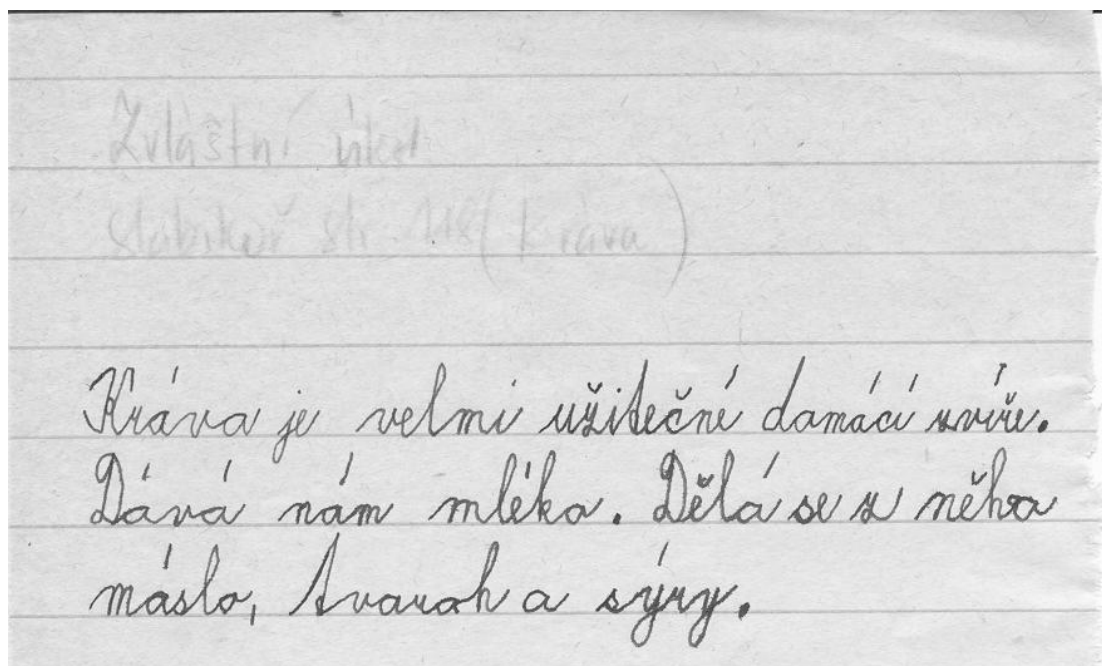 Zvláštní úkol
slabikář str. 118 (kráva)
Kráva je velmi užitečné damácí zvíře.
Dává nám mléko. Dělá se z něho
máslo, tvaroh a sýry.